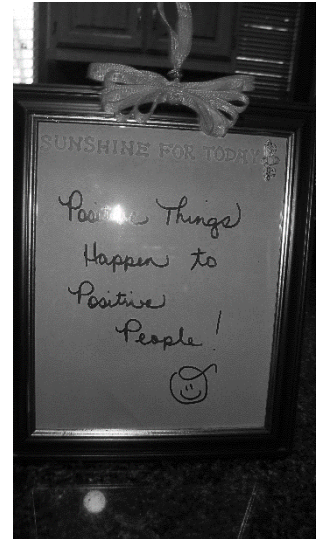 SUNSHINE FOR TODAY
Positive Things
Happen to
Positive
People!